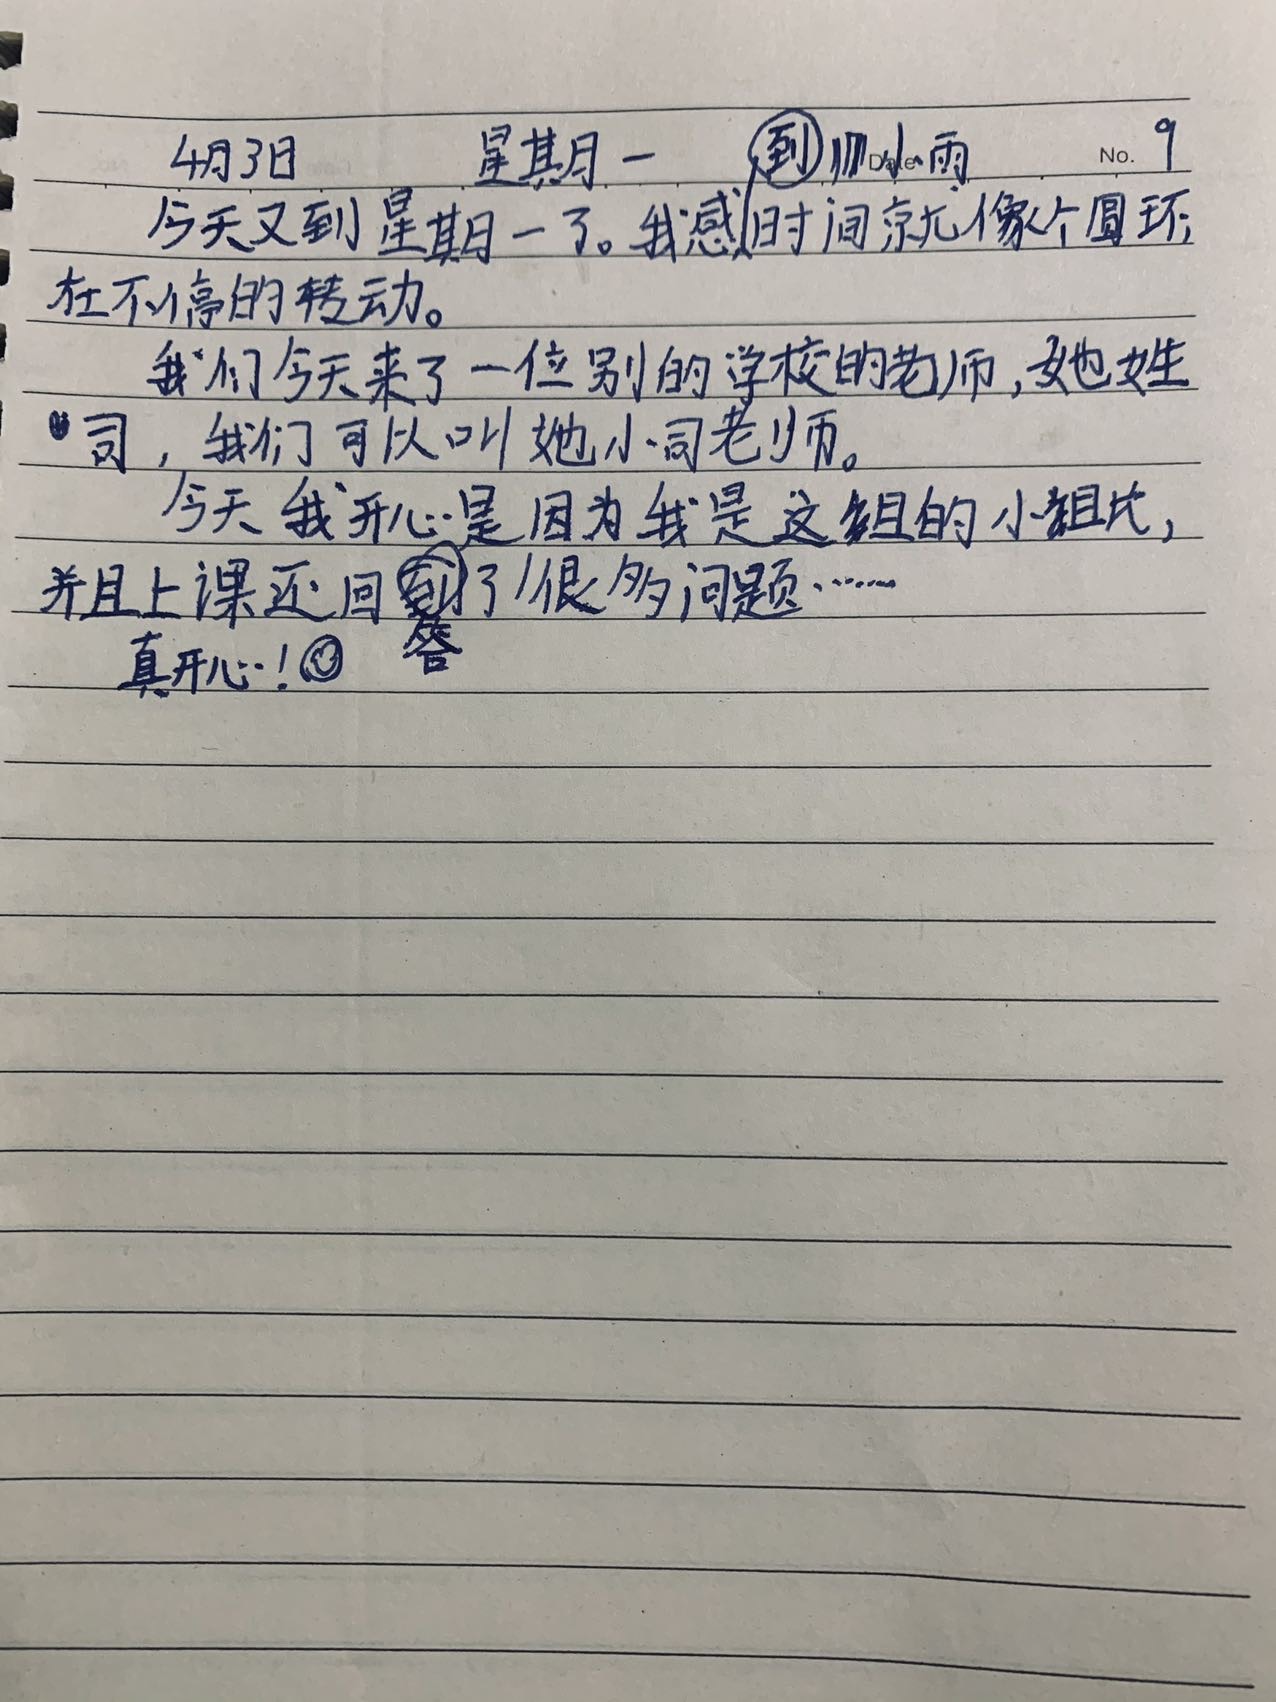 4月3日 星期一 小雨 Date No. 9
今天又到星期一了。我感到时间就像个圆环,
在不停的转动。
我们今天来了一位别的学校的老师,她姓
司,我们可以叫她小司老师。
今天我开心是因为我是这组的小组长,
并且上课还回答了很多问题……
真开心!